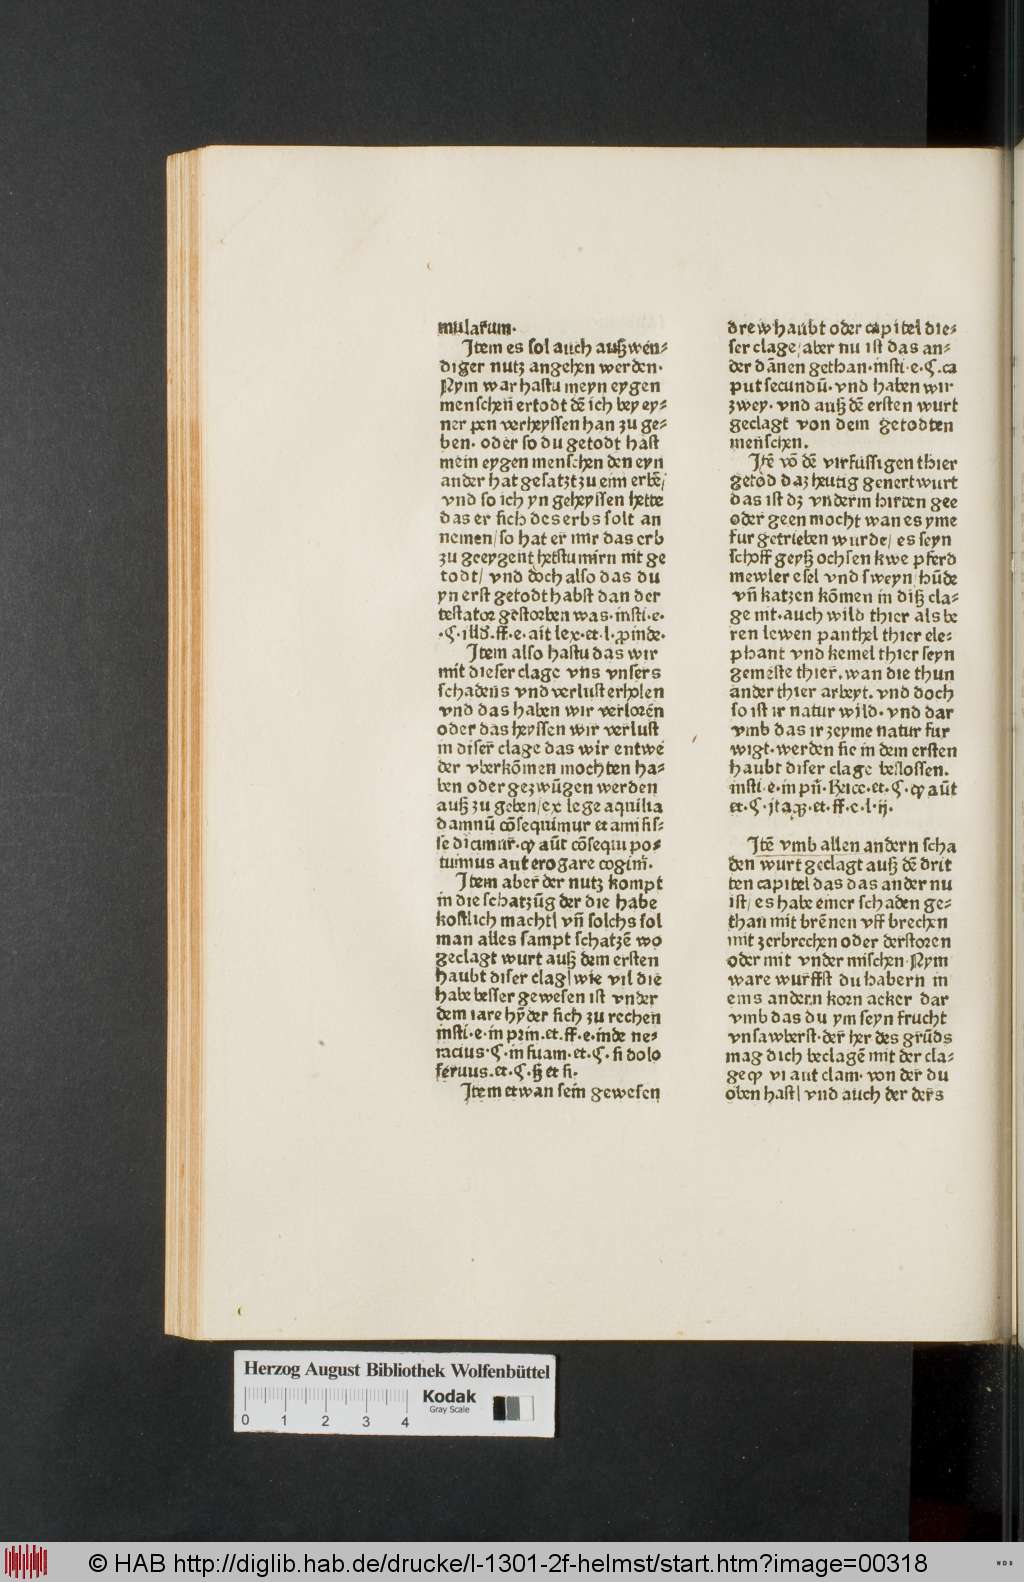 mularum.
Item es sol auch außwen⸗
diger nutz angehen werden.
Nym war hastu meyn eygen
menschen ertodt dē ich bey ey⸗
ner pen verheyssen han zu ge⸗
ben. oder so du getodt hast
mein eygen menschen den eyn
ander hat gesatzt zu eim erbē/
vnd so ich yn geheyssen hette
das er sich des erbs solt an
nemen/ so hat er mir das erb
zu geeygent hetstu mirn nit ge
todt/ vnd doch also das du
yn erst getodt habst dan der
testator gestorben was. insti.e.
.§.illđ.ff.e.ait lex.et.l.ꝓinde.
Item also hastu das wir
mit dieser clage vns vnsers
schadens vnd verlust erholen
vnd das haben wir verloren
oder das heyssen wir verlust
in diser clage das wir entwe
der vberkōmen mochten ha⸗
ben oder gezwūgen werden
auß zu geben/ ex lege aquilia
damnū cōsequimur et amisis⸗
se dicimur. ꝙ aūt cōsequi po⸗
tuimus aut erogare cogim̄.
Item aber der nutz kompt
in die schatzūg der die habe
kostlich macht/ vn̄ solchs sol
man alles sampt schatzē wo
geclagt wurt auß dem ersten
haubt diser clag/ wie vil die
habe besser gewesen ist vnder
dem iare hyder sich zu rechen
insti.e.in prin.et.ff.e.inde ne⸗
racius.§.in suam.et.§.si dolo
seruus.et.§.ß et si.
Item etwan sein gewesen
drew haubt oder capitel die⸗
ser clage/ aber nu ist das an⸗
der dānen gethan.insti.e.§.ca
put secundū. vnd haben wir
zwey. vnd auß dē ersten wurt
geclagt von dem getodten
menschen.
Itē vō dē virfüssigen thier
getod daz heutig genert wurt
das ist dz vnderm hirten gee
oder geen mocht wan es yme
fur getrieben wurde/ es seyn
schoff geyß ochsen kwe pferd
mewler esel vnd sweyn/ hūde
vn̄ katzen kōmen in diß cla⸗
ge nit. auch wild thier als be
ren lewen panthel thier ele⸗
phant vnd kemel thier seyn
gemeste thier. wan die thun
ander thier arbeyt. vnd doch
so ist ir natur wild. vnd dar
vmb das ir zeyme natur fur
wigt. werden sie in dem ersten
haubt diser clage beslossen.
insti.e.in pn̄. Heicc.et.§.ꝙ aūt
et.§.itaqꝫ.et.ff.e.l.ij.
Itē vmb allen andern scha
den wurt geclagt auß dē drit
ten capitel das das ander nu
ist/ es habe einer schaden ge⸗
than mit brēnen vff brechen
mit zerbrechen oder derstoren
oder mit vnder mischen. Nym
ware wurffst du habern in
eins andern korn acker dar
vmb das du ym seyn frucht
vnsawberst. der her des grūds
mag dich beclagē mit der cla⸗
ge ꝙ vi aut clam. von der du
oben hast/ vnd auch der ders
Herzog August Bibliothek Wolfenbüttel
Kodak
Gray Scale
0 1 2 3 4
© HAB http://diglib.hab.de/drucke/l-1301-2f-helmst/start.htm?image=00318
WDB